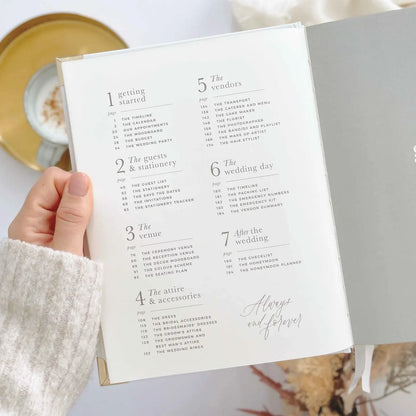 1 getting
started
page
THE TIMELINE
THE CALENDAR
OUR APPOINTMENTS
THE MOODBOARD
THE BUDGET
THE WEDDING PARTY
2 The guests
& stationery
page
THE GUEST LIST
THE STATIONERY
THE SAVE THE DATES
THE INVITATIONS
THE STATIONERY TRACKER
3 The
venue
page
THE CEREMONY VENUE
THE RECEPTION VENUE
THE DÉCOR MOODBOARD
THE COLOUR SCHEME
THE SEATING PLAN
4 The attire
& accessories
page
THE DRESS
THE BRIDAL ACCESSORIES
THE BRIDESMAIDS' DRESSES
THE GROOM'S ATTIRE
THE GROOMSMEN AND
BEST MAN'S ATTIRE
THE WEDDING RINGS
5 The
vendors
page
THE TRANSPORT
THE CATERER AND MENU
THE CAKE MAKER
THE FLORIST
THE PHOTOGRAPHER
THE BAND/DJ AND PLAYLIST
THE MAKE UP ARTIST
THE HAIR STYLIST
6 The
wedding day
page
THE TIMELINE
THE PACKING LIST
THE EMERGENCY NUMBERS
THE EMERGENCY KIT
THE VENDOR SUMMARY
7 After the
wedding
page
THE CHECKLIST
THE HONEYMOON
THE HONEYMOON PLANNER
Always
and forever